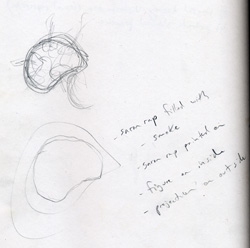 - saran rap filled with
- smoke
- saran rap painted on
- figure on inside
- projection on outside